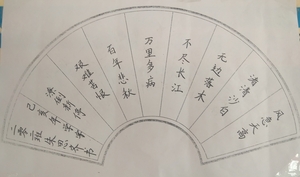 风急天高
渚清沙白
无边落木
不尽长江
万里多病
百年悲秋
艰难苦恨
潦倒新停
己亥年
班朱思齐书